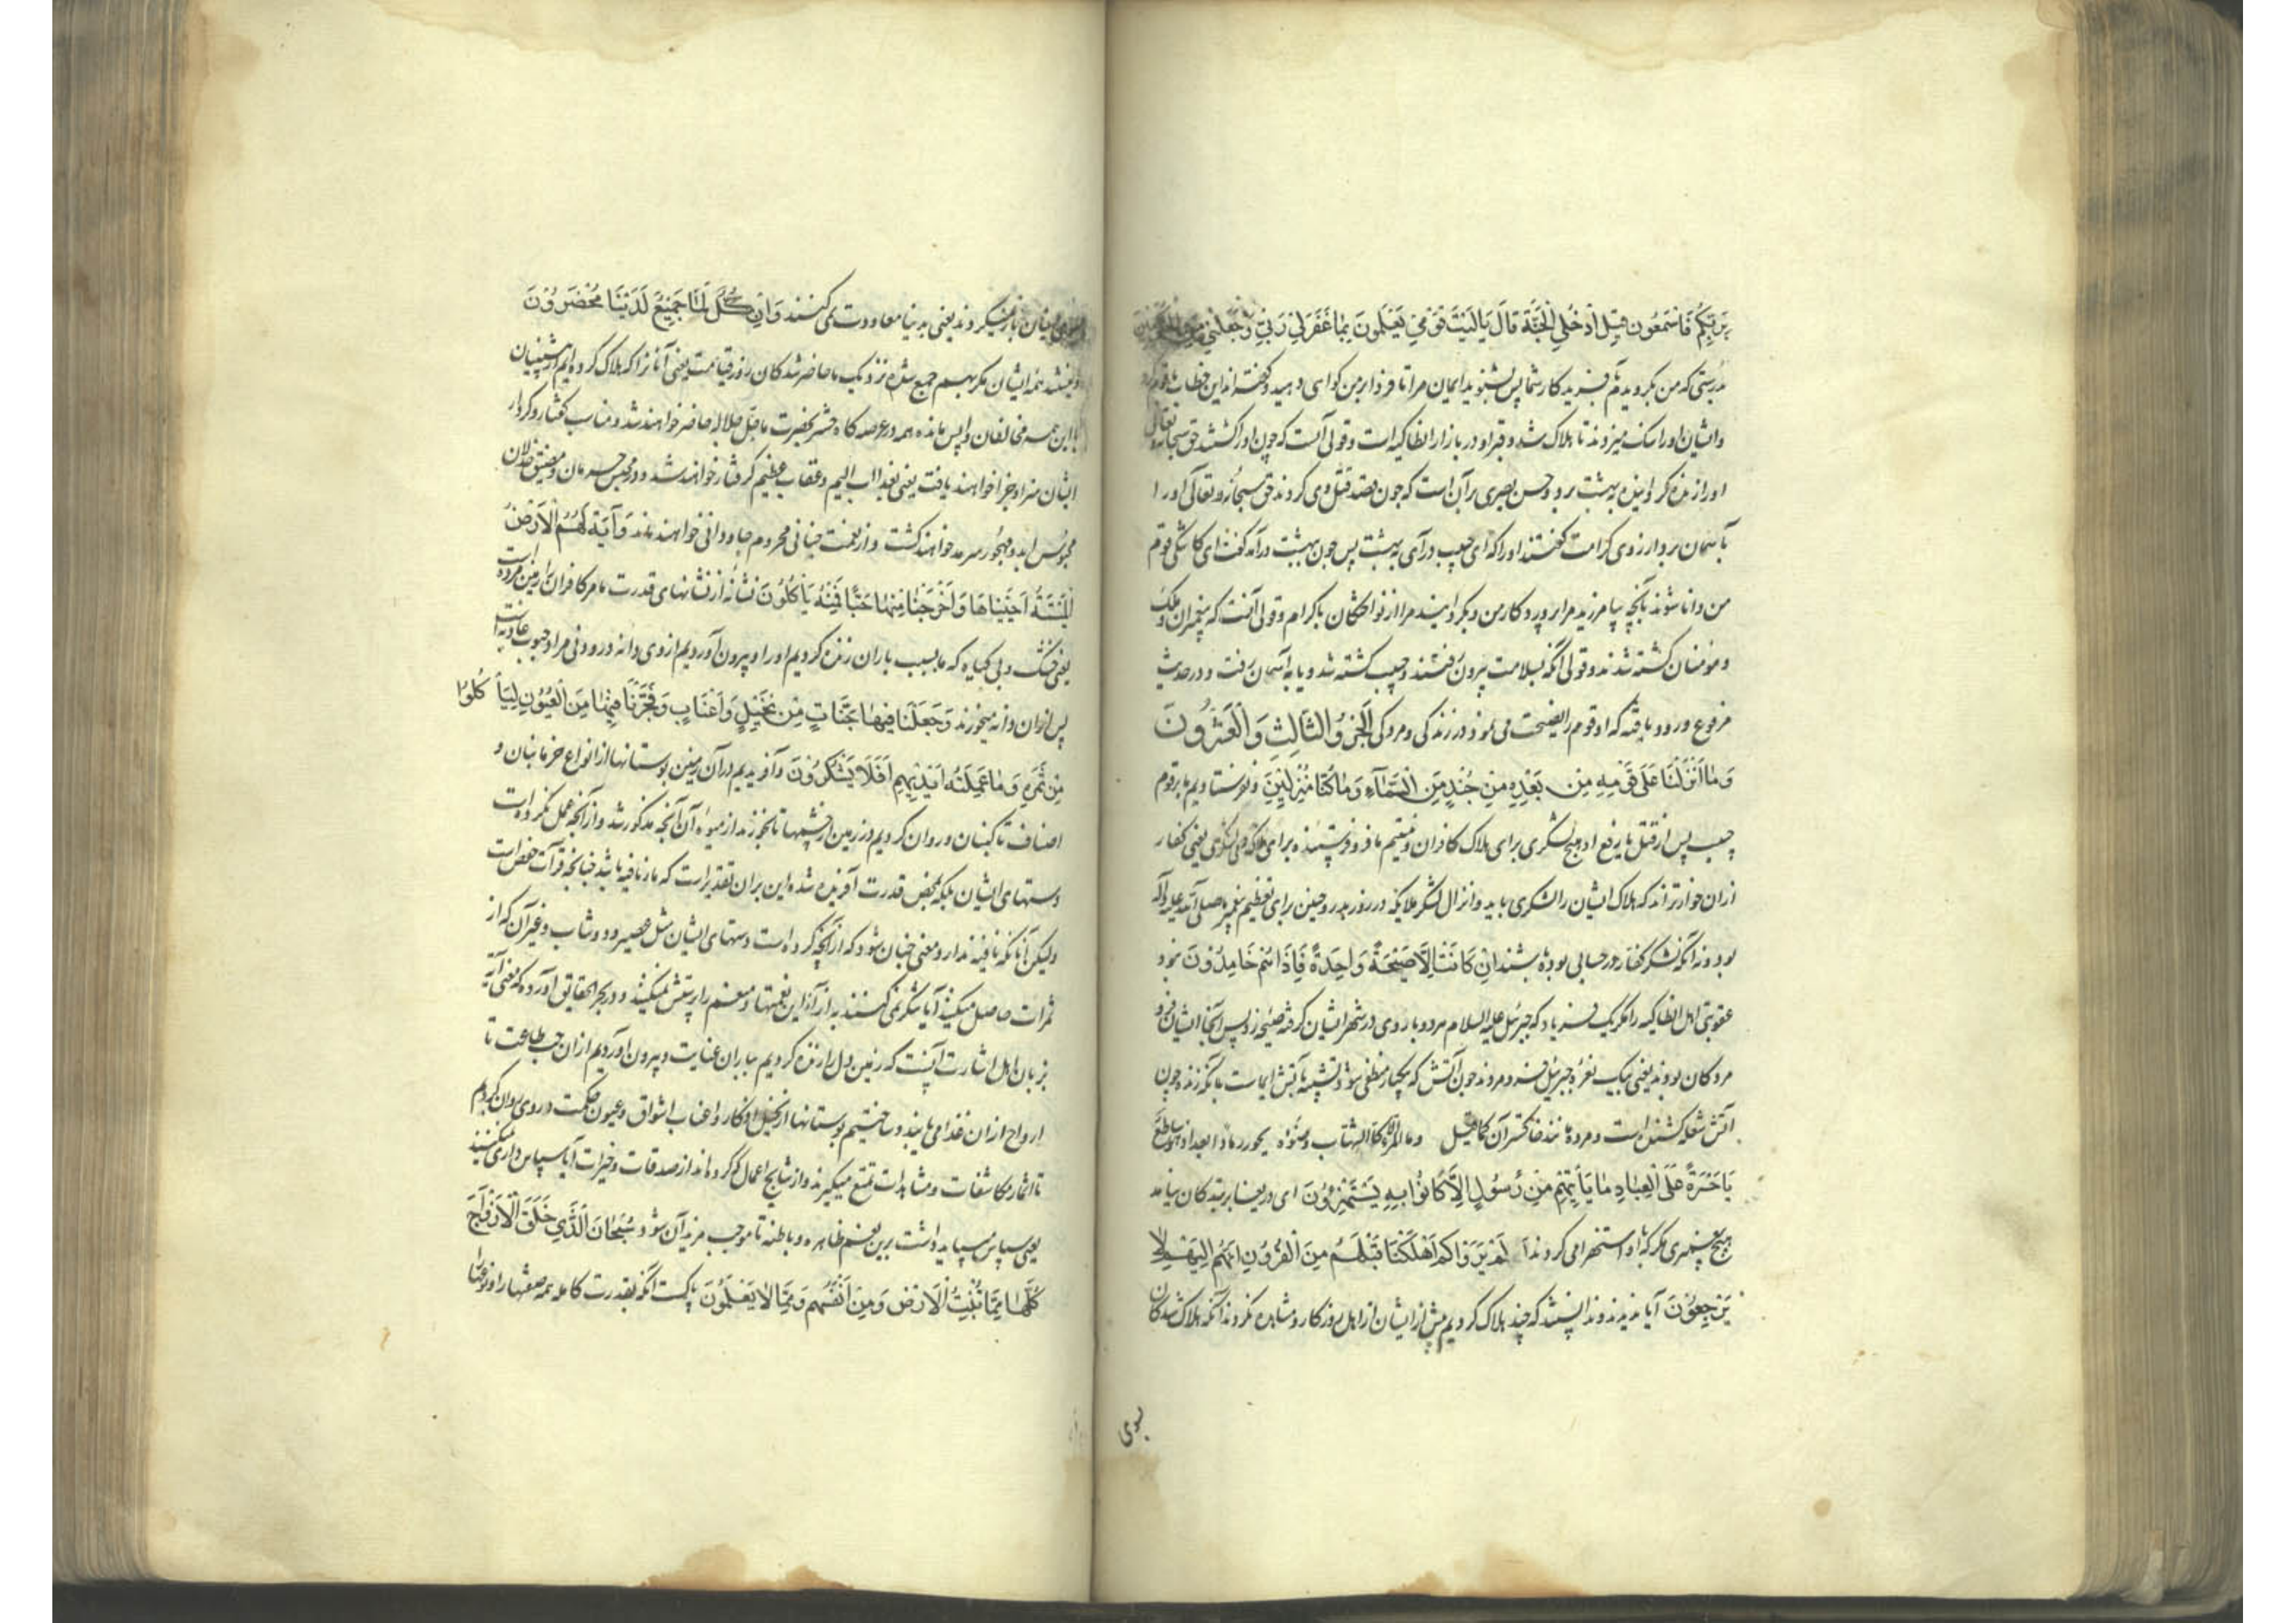 بربكم فاسمعون قيل ادخل الجنة قال يا ليت قومي يعلمون بما غفر لي ربي وجعلني من المكرمين
بدرستی که من بکرویدم بآفریدکار شما پس بشنوید ایمان مرا تا فردا بر من کواهی دهید و کفته اند این خطاب با قوم کرد
و ایشان او را سنک میزدند تا هلاک شد و قبر او در بازار انطاکیه است و قولی آنست که چون او را کشتند حق سبحانه و تعالی
او را زنده کردانیده به بهشت برد و حسن بصری بر آن است که چون قصد قتل وی کردند حق سبحانه و تعالی او را
بآسمان برد و از روی کرامت کفتند او را که ای حبیب درآی به بهشت پس چون ببهشت درآمد کفت ای کاشکی قوم
من دانا شوند بآنچه بیامرزید مرا پروردکار من و بکردانید مرا از نواختکان باکرام و قولی آنست که پیغمبران و ملک
و مؤمنان کشته شدند و قولی آنکه بسلامت بیرون رفتند و حبیب کشته شد و یا به آسمان رفت و در حدیث
مرفوع ورود یافته که او قوم را نصیحت می نمود در زندکی و مردکی الجزو الثالث والعشرون
وما انزلنا على قومه من بعده من جند من السماء وما كنا منزلين و نفرستادیم ما بر قوم
حبیب پس از قتل یا رفع او هیچ لشکری برای هلاک کافران و نیستیم ما فرو فرستنده برای هلاک هیچ لشکری یعنی کفار
از ان خوارتراند که هلاک ایشان را لشکری باید و انزال لشکر ملایکه در روز بدر و حنین برای تعظیم پیغمبر صلی الله علیه وآله
بود و نه آنکه لشکر کفار در حسابی بوده باشند ان كانت الا صيحة واحدة فاذا هم خامدون نبود
عقوبتی اهل انطاکیه را مکر یک فریاد که جبرئیل علیه السلام هر دو باروی در شهر ایشان کرفته صیحه زد پس آنجا ایشان فرو
مردکان بودند یعنی بیک نعره جبرئیل فرو مردند چون آتش که یکبار منطفی شود و تشبیه بآتش ایماست بآنکه زنده چون
آتش شعله کشنده است و مرده مانند خاکستر آن کما قیل وما المرء الا کالشهاب وضوءه یحور رمادا بعد اذ هو ساطع
يا حسرة على العباد ما ياتيهم من رسول الا كانوا به يستهزؤن ای دریغا بر بندکان نیامد
هیچ پیغمبری مکر که باو استهزا می کردند الم يروا كم اهلكنا قبلهم من القرون انهم اليهم لا
يرجعون آیا ندیدند و ندانستند که چند هلاک کردیم پیش از ایشان از اهل روزکار و مشاهده نکردند آنکه هلاک شدکان
بسوی
بسوی ایشان باز نمیکردند یعنی بدنیا معاودت نمی کنند وان كل لما جميع لدينا محضرون
و نیستند همه ایشان مکر بهم جمع شده نزدیک ما حاضر شدکان روز قیامت یعنی آنانرا که هلاک کرده ایم از پیشینیان
با این همه مخالفان واپس مانده همه در عرصه کاه حشر بحضرت ما جل جلاله حاضر خواهند شد و مناسب کفتار و کردار
ایشان سزا و جزا خواهند یافت یعنی بعذاب الیم و عقاب عظیم کرفتار خواهند شد و در محبس حرمان و مضیق خذلان
محبوس ابد و مهجور سرمد خواهند کشت و از نعمت جنانی محروم جاودانی خواهند ماند واية لهم الارض
الميتة احييناها واخرجنا منها حبا فمنه ياكلون نشانه از نشانهای قدرت ما مر کافران را زمین مرده است
یعنی خشک و بی کیاه که ما بسبب باران زنده کردیم او را و بیرون آوردیم از وی دانه درودنی مراد حبوب عادیه است
پس از ان دانه میخورند وجعلنا فيها جنات من نخيل واعناب وفجرنا فيها من العيون لياكلوا
من ثمره وما عملته ايديهم افلا يشكرون و آفریدیم در آن زمین بوستانها از انواع خرما بنان و
اصناف تاکبنان و روان کردیم در زمین از چشمها تا بخورند از میوه آن آنچه مذکور شد و از آنچه عمل نکرده است
دستهای ایشان بلکه بمحض قدرت آفریده شده این بر ان تقدیر است که ما نافیه باشد چنانچه قرآت حفص است
ولیکن آنانکه نافیه ندارد معنی چنان شود که از آنچه کرده است دستهای ایشان مثل عصیر و دوشاب و غیر آن که از
ثمرات حاصل میکنند آیا شکر نمی کنند بر ازاء این نعمتها و منعم را پرستش نمیکنند و در بحر الحقایق آورده که معنی آیه
بزبان اهل اشارت آنست که زمین دل را زنده کردیم بباران عنایت و بیرون آوردیم از ان حب طاعت تا
ارواح از ان غذا می یابند و ساختیم بوستانها از نخیل اذکار و اعناب اشواق و عیون حکمت در وی روان کردیم
تا اثمار مکاشفات و مشاهدات تمتع میکیرند و از نتایج اعمال که کرده اند از صدقات و خیرات آیا سپاس داری نمیکنند
یعنی سپاس میباید داشت برین نعم ظاهره و باطنه تا موجب مزید آن شود سبحان الذي خلق الازواج
كلها مما تنبت الارض ومن انفسهم ومما لا يعلمون پاکست آنکه بقدرت کامله همه صنفها را و نوعها را